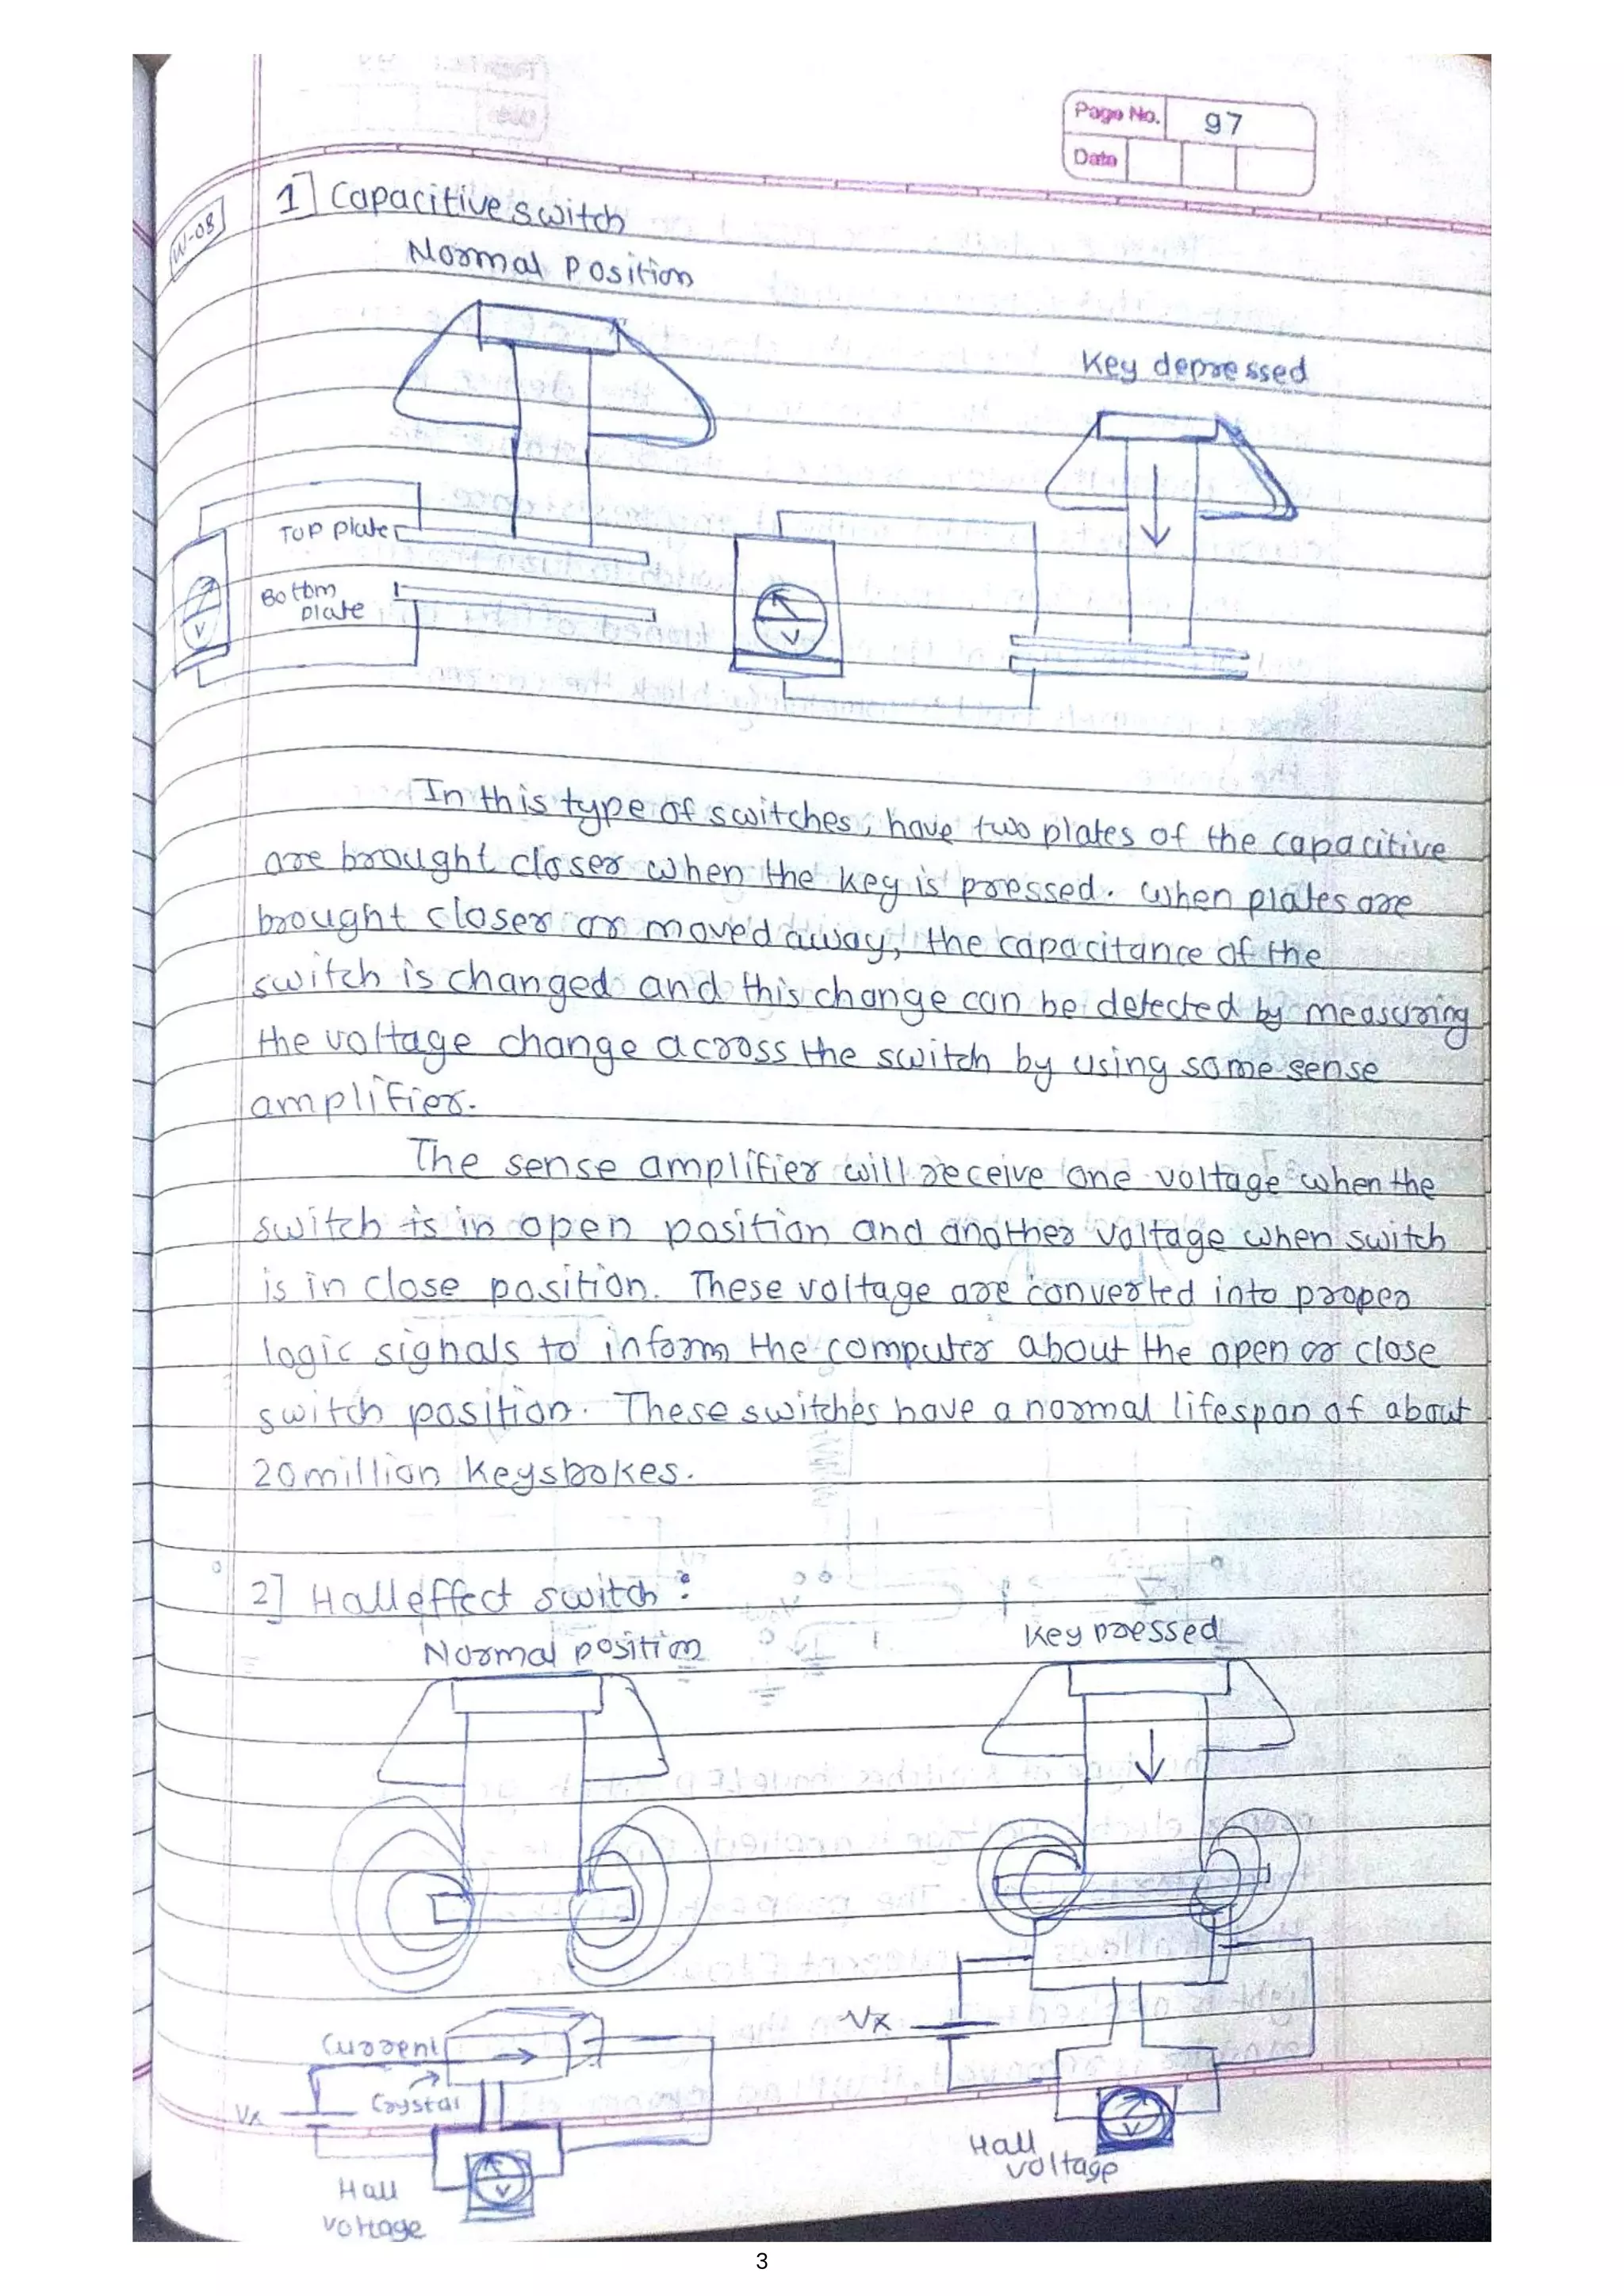 Page No. 97
Date
W-08
1] Capacitive switch
Normal Position
Key depressed
Top plate
Bottom
plate
V
V
In this type of switches, have two plates of the capacitive
are brought closer when the key is pressed. When plates are
brought closer or moved away, the capacitance of the
switch is changed and this change can be detected by measuring
the voltage change across the switch by using some sense
amplifier.
The sense amplifier will receive one voltage when the
switch is in open position and another voltage when switch
is in close position. These voltage are converted into proper
logic signals to inform the computer about the open or close
switch position. These switches have a normal lifespan of about
20 million keysbokes.
2] Hall effect switch :
Normal position
Key pressed
Current
Crystal
Vx
Vx
V
V
Hall
voltage
Hall
voltage
3